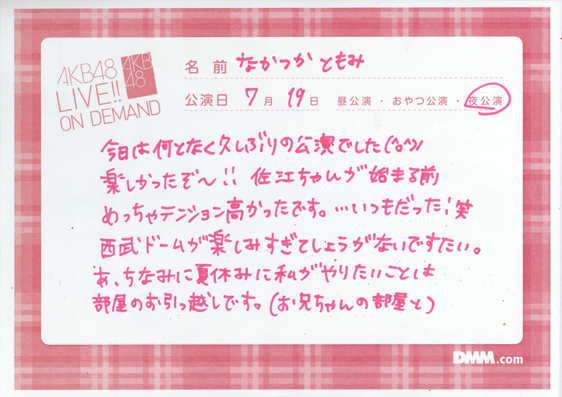 AKB48
LIVE!!
ON DEMAND
AKB
48
名前 なかつか ともみ
公演日 7月19日 昼公演・おやつ公演・夜公演
今日は何となく久しぶりの公演でした(^o^)/
楽しかったぞ〜!! 佐江ちゃんが始まる前
めっちゃテンション高かったです。…いつもだった!笑
西武ドームが楽しみすぎてしょうがないですたい。
あ、ちなみに夏休みに私がやりたいことは
部屋のお引っ越しです。(お兄ちゃんの部屋と)
DMM.com